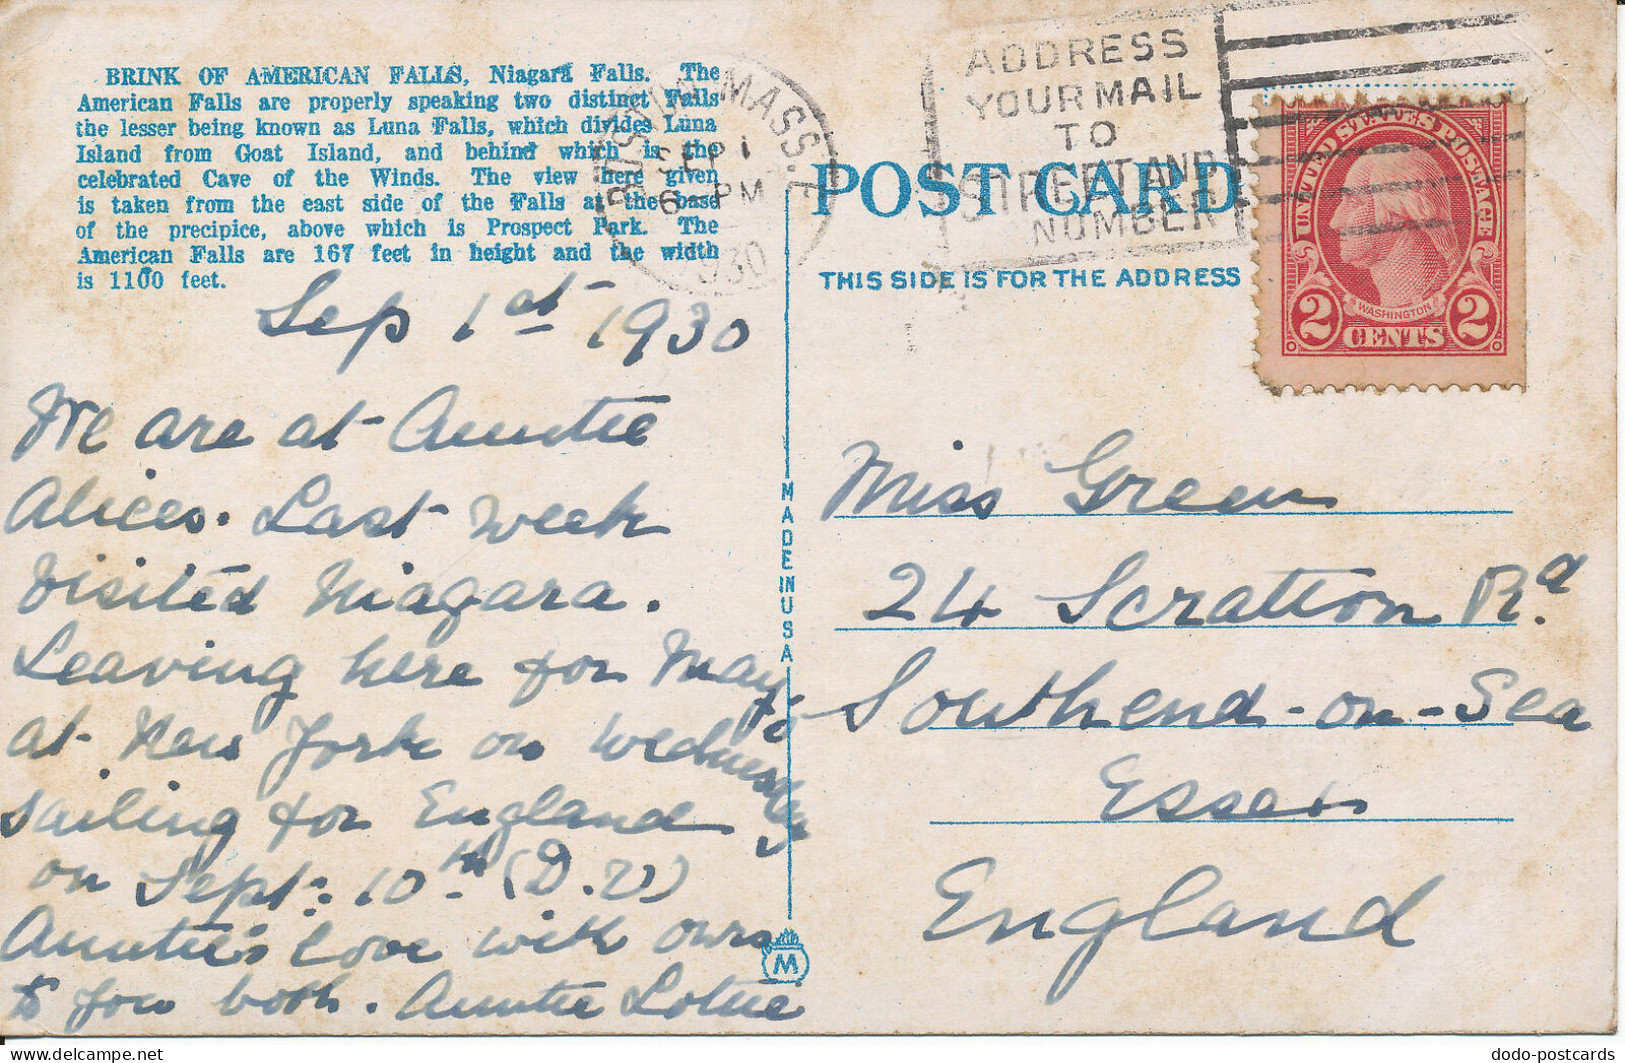 BRINK OF AMERICAN FALLS, Niagara Falls. The
American Falls are properly speaking two distinct Falls
the lesser being known as Luna Falls, which divides Luna
Island from Goat Island, and behind which is the
celebrated Cave of the Winds. The view here given
is taken from the east side of the Falls at the base
of the precipice, above which is Prospect Park. The
American Falls are 167 feet in height and the width
is 1100 feet.
Sep 1st 1930
We are at Auntie
Alices. Last week
visited Niagara.
Leaving here for May's
at New York on Wednesday
sailing for England
on Sept: 10th (D.V)
Auntie's love with ours
to you both. Auntie Lottie
MADE IN USA
M
MASS.
SEP 1
6 PM
1930
ADDRESS
YOUR MAIL
TO
STREET AND
NUMBER
POST CARD
THIS SIDE IS FOR THE ADDRESS
UNITED STATES POSTAGE
WASHINGTON
2 CENTS 2
Miss Green
24 Scratton Rd
Southend-on-Sea
Essex
England
dodo-postcards